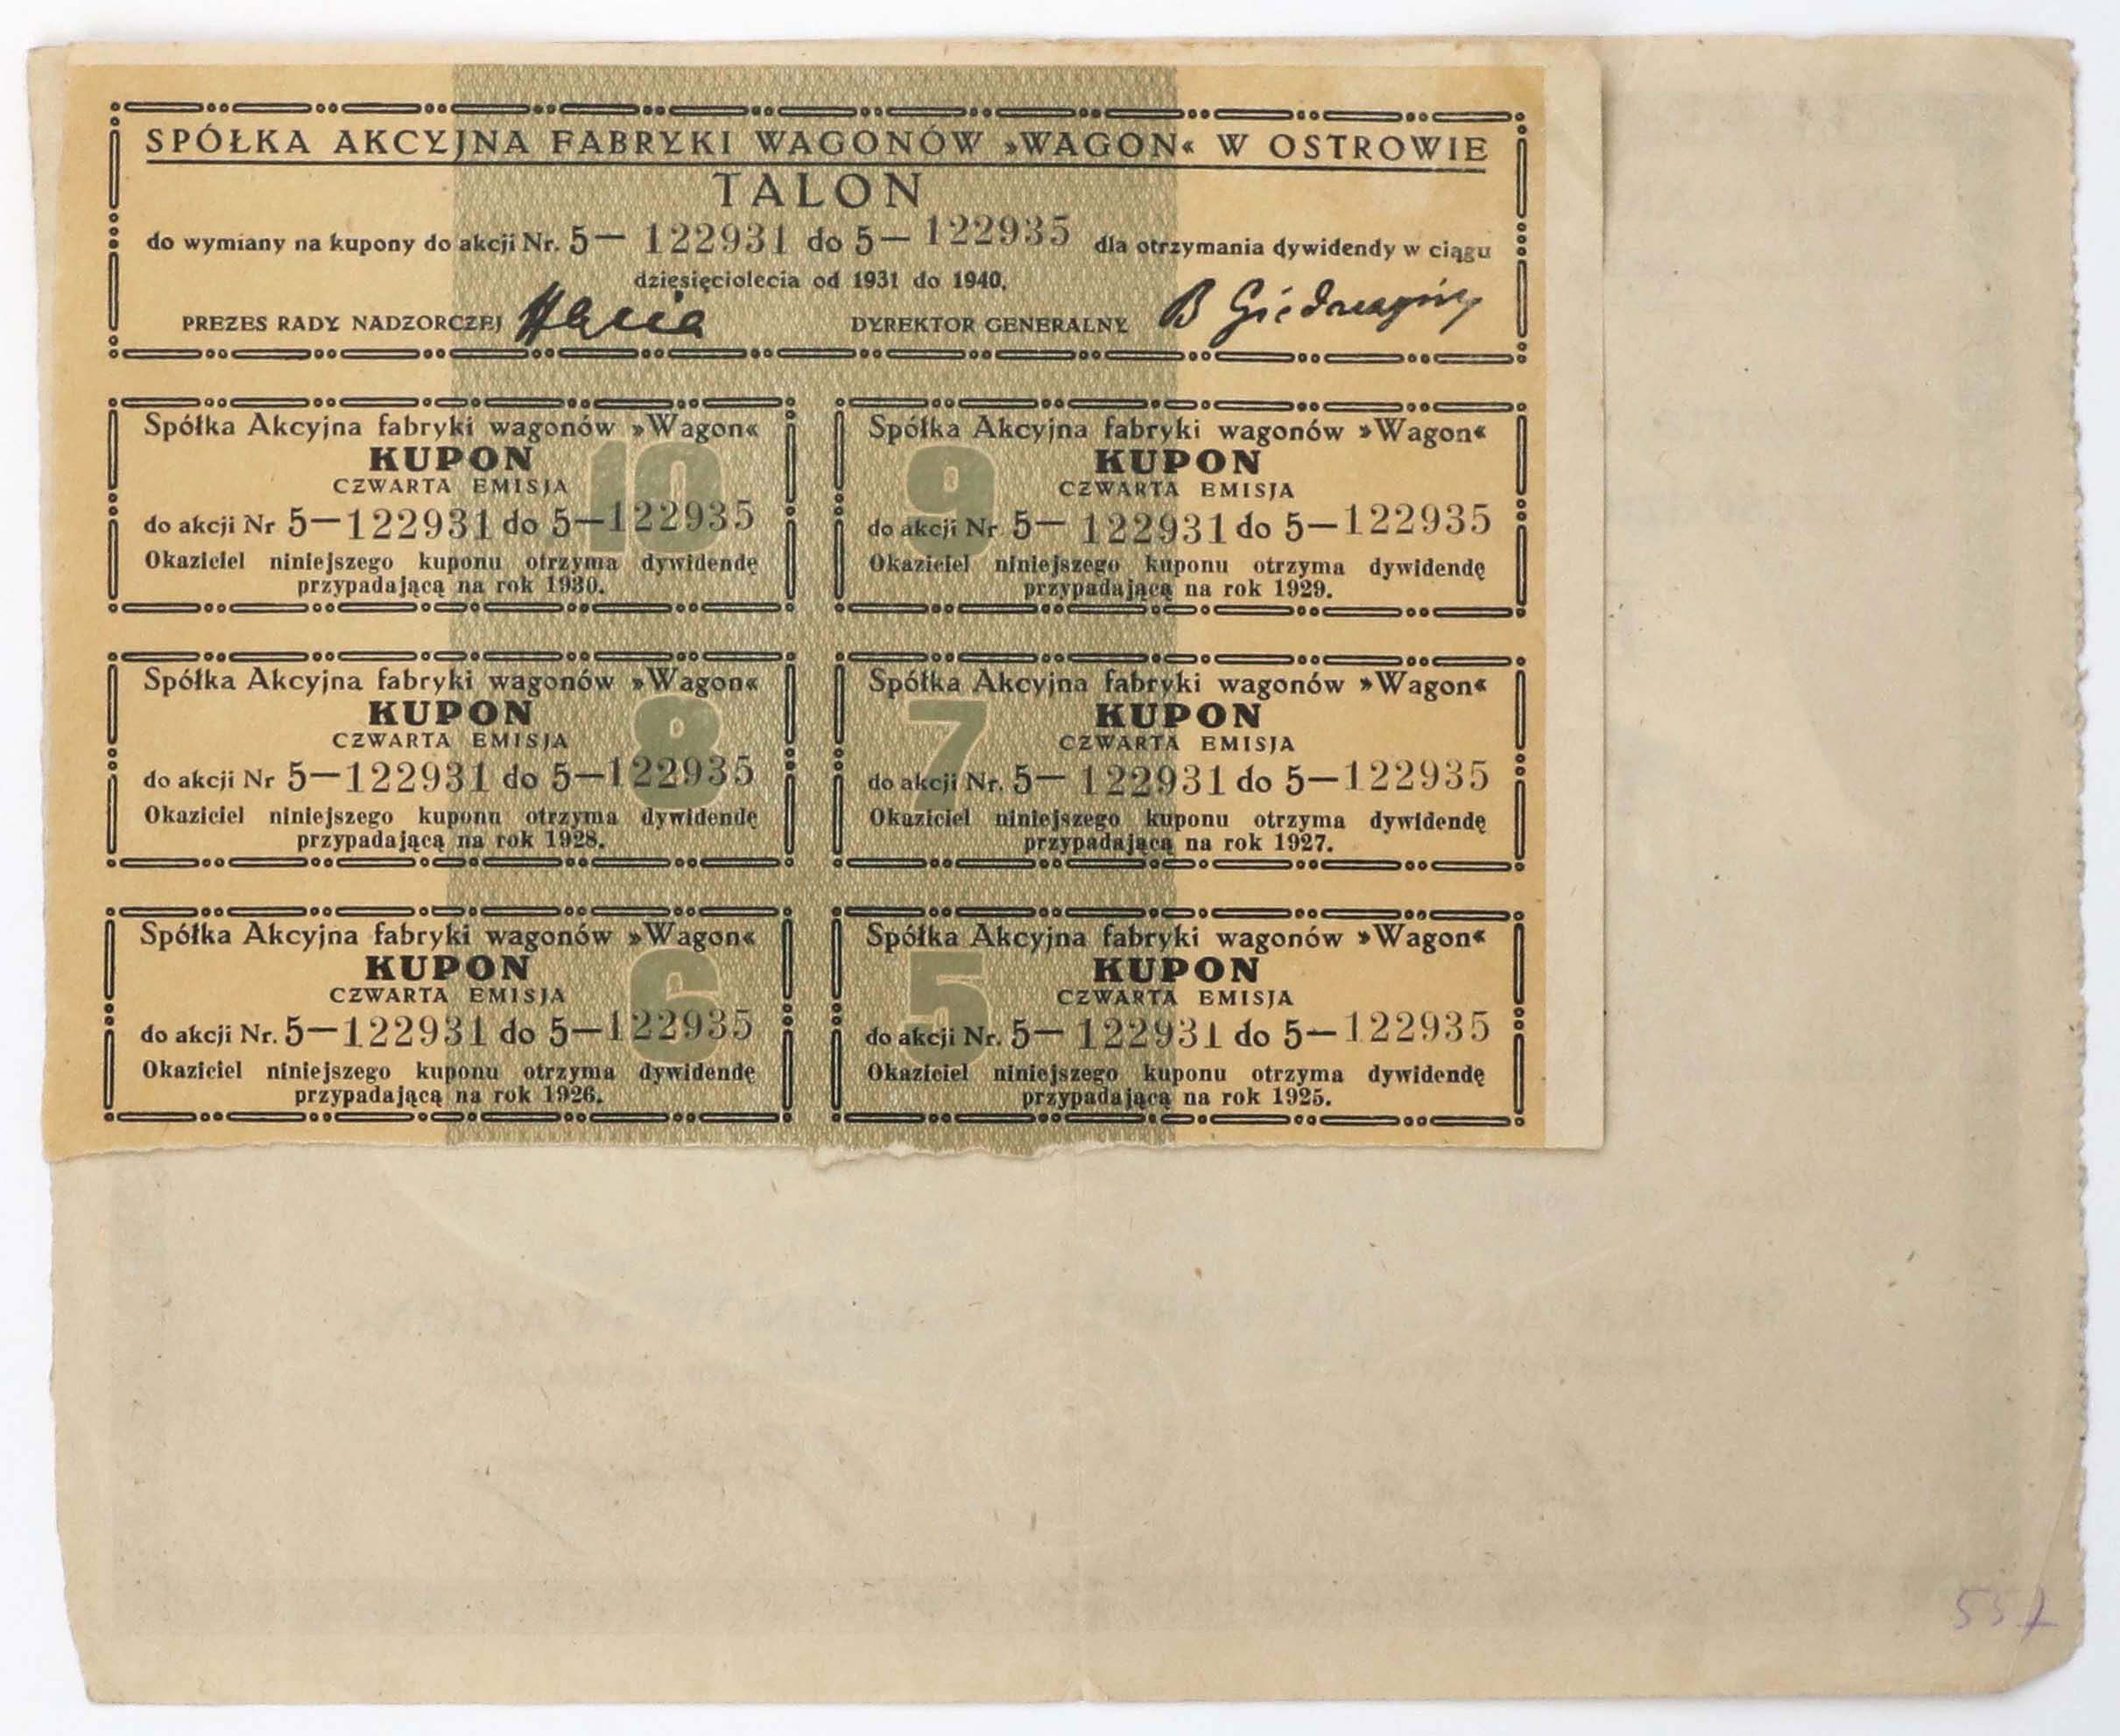 SPÓŁKA AKCYJNA FABRYKI WAGONÓW »WAGON« W OSTROWIE
TALON
do wymiany na kupony do akcji Nr. 5— 122931 do 5— 122935 dla otrzymania dywidendy w ciągu
dziesięciolecia od 1931 do 1940.
PREZES RADY NADZORCZEJ DYREKTOR GENERALNY
Spółka Akcyjna fabryki wagonów »Wagon«
KUPON 10
CZWARTA EMISJA
do akcji Nr 5—122931 do 5—122935
Okaziciel niniejszego kuponu otrzyma dywidendę
przypadającą na rok 1930.
Spółka Akcyjna fabryki wagonów »Wagon«
9 KUPON
CZWARTA EMISJA
do akcji Nr. 5— 122931 do 5—122935
Okaziciel niniejszego kuponu otrzyma dywidendę
przypadającą na rok 1929.
Spółka Akcyjna fabryki wagonów »Wagon«
KUPON 8
CZWARTA EMISJA
do akcji Nr 5—122931 do 5—122935
Okaziciel niniejszego kuponu otrzyma dywidendę
przypadającą na rok 1928.
Spółka Akcyjna fabryki wagonów »Wagon«
7 KUPON
CZWARTA EMISJA
do akcji Nr. 5— 122931 do 5—122935
Okaziciel niniejszego kuponu otrzyma dywidendę
przypadającą na rok 1927.
Spółka Akcyjna fabryki wagonów »Wagon«
KUPON 6
CZWARTA EMISJA
do akcji Nr. 5—122931 do 5—122935
Okaziciel niniejszego kuponu otrzyma dywidendę
przypadającą na rok 1926.
Spółka Akcyjna fabryki wagonów »Wagon«
5 KUPON
CZWARTA EMISJA
do akcji Nr. 5— 122931 do 5—122935
Okaziciel niniejszego kuponu otrzyma dywidendę
przypadającą na rok 1925.